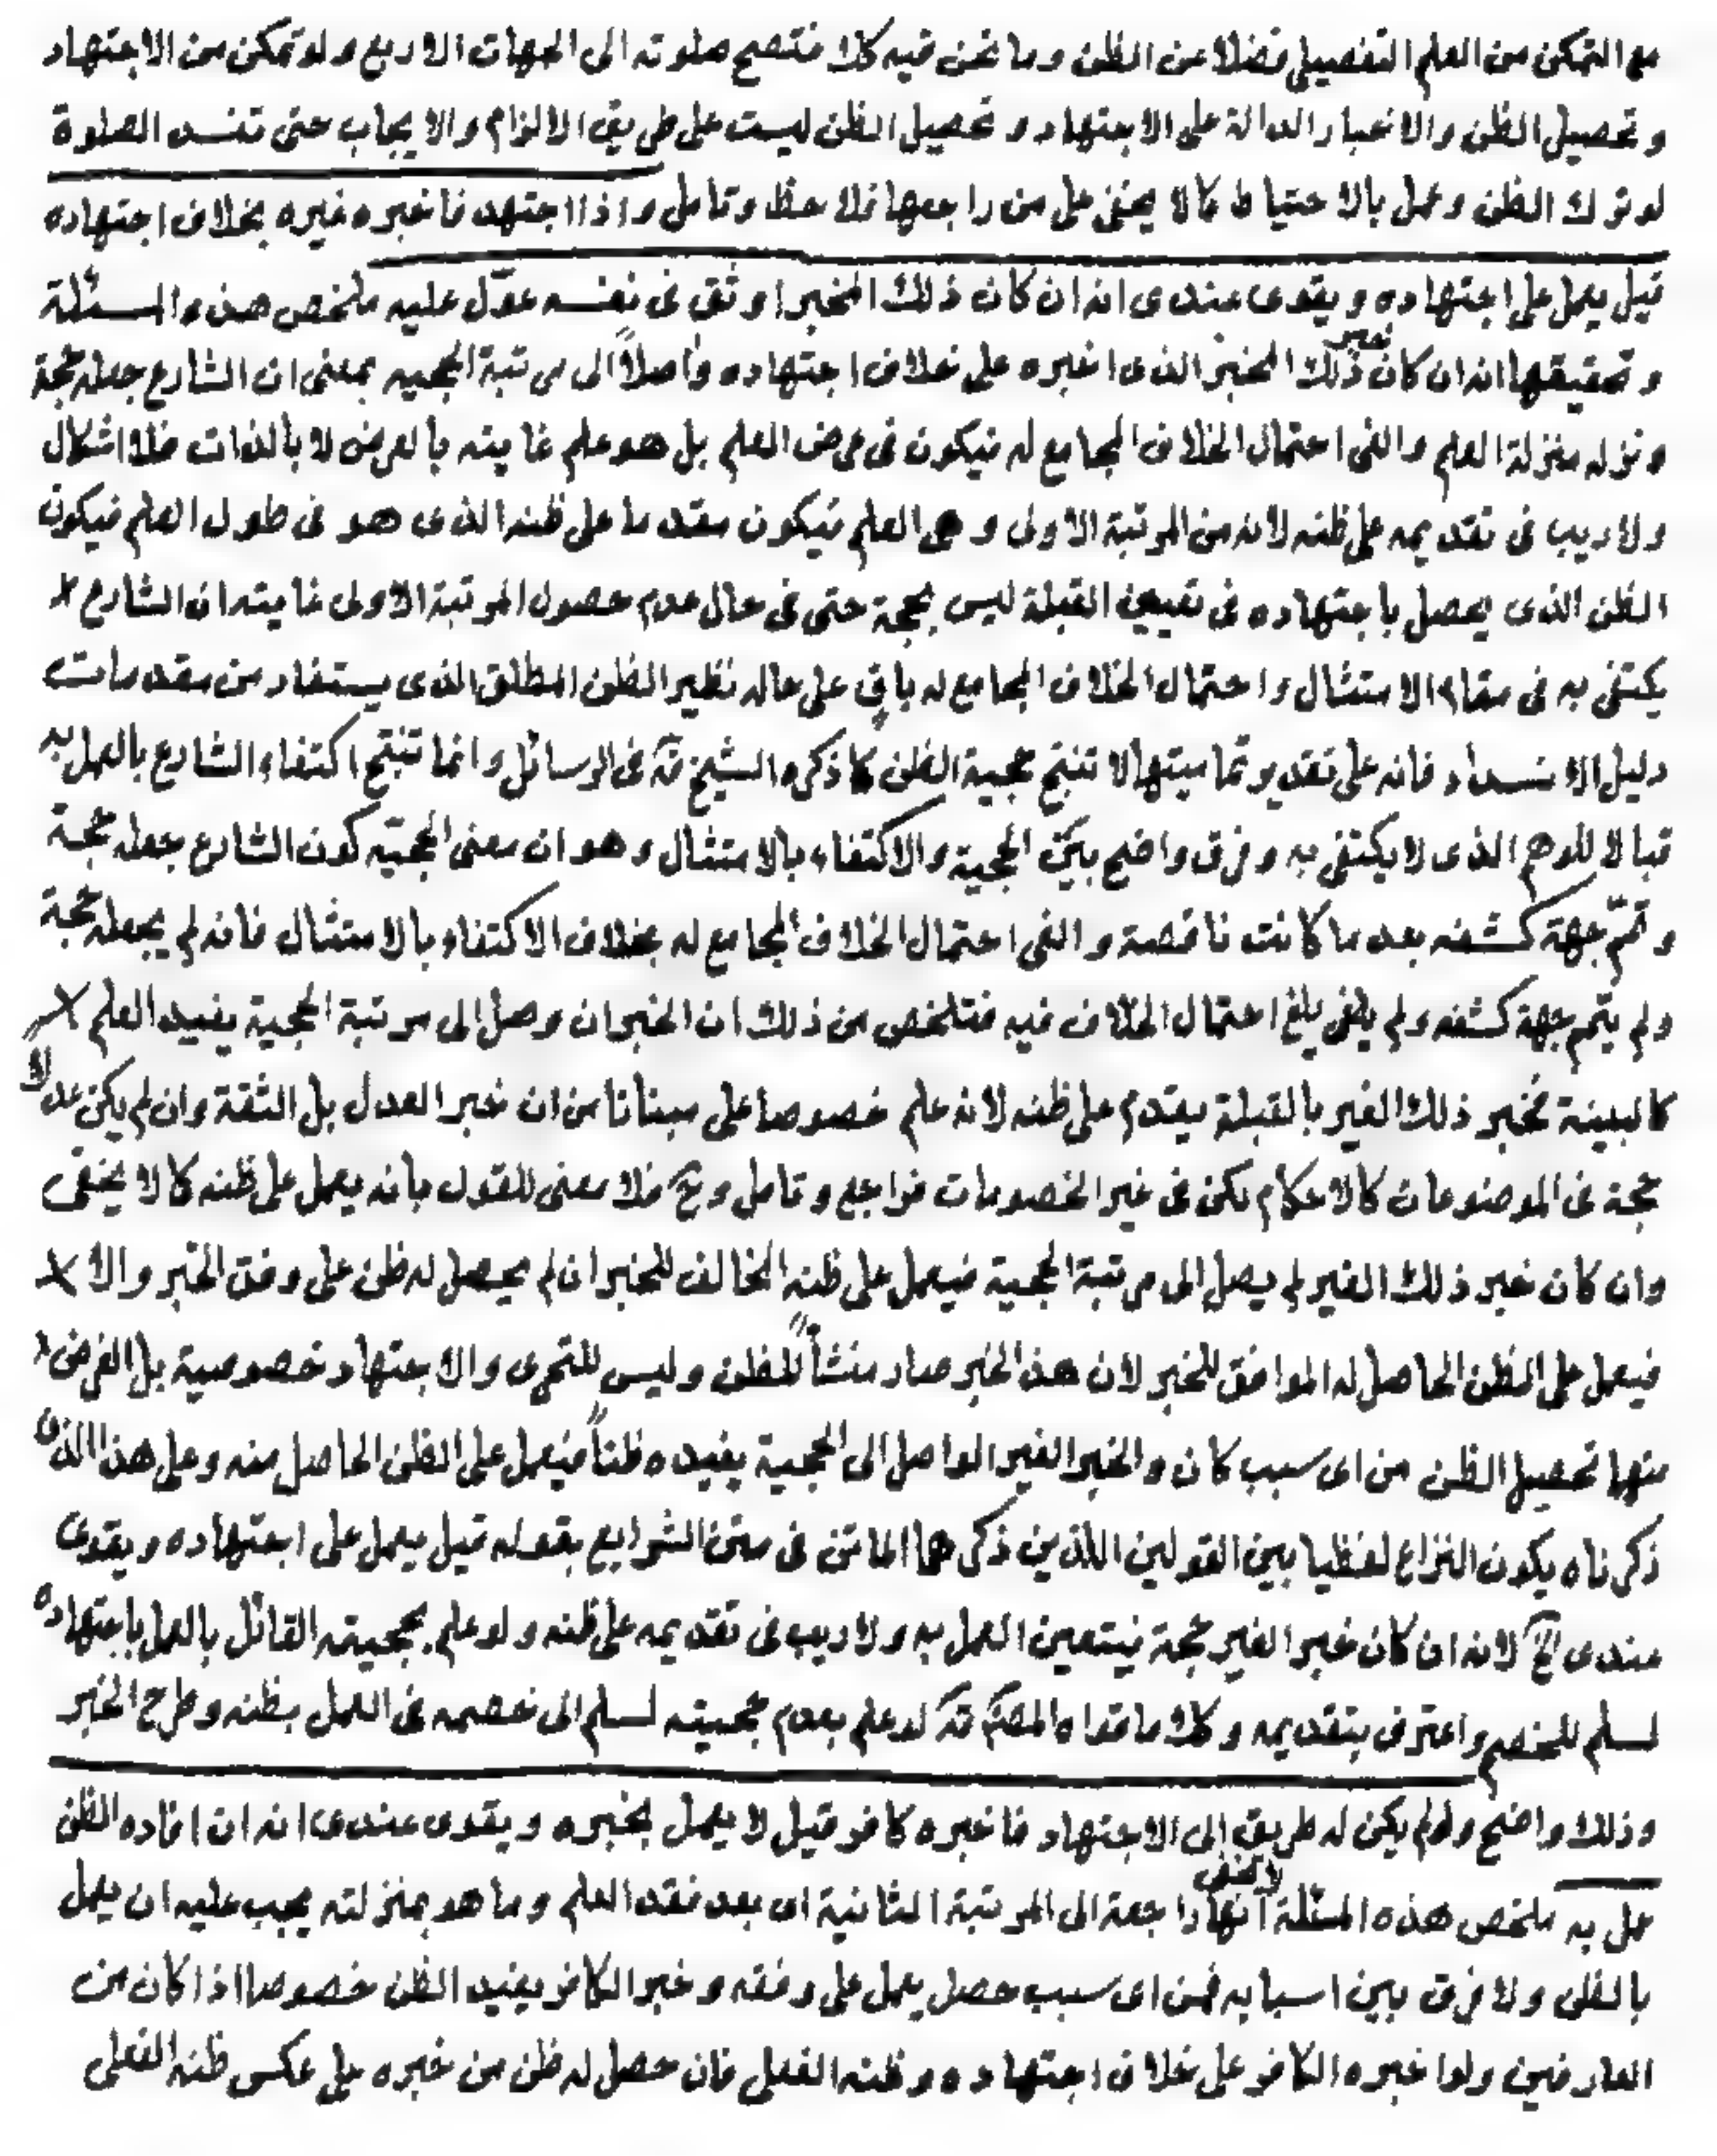 مع التمكن من العلم التفصيلي فضلا عن الظن وما نحن فيه كك فتصح صلوته الى الجهات الاربع ولو تمكن من الاجتهاد
و تحصيل الظن والاخبار الدالة على الاجتهاد و تحصيل الظن ليست على طريق الالزام والايجاب حتى تفسد الصلوة
لو ترك الظن وعمل بالاحتياط كما لا يخفى على من راجعها فلاحظ وتامل واذا اجتهد فاخبره غيره بخلاف اجتهاده
قيل يعمل على اجتهاده ويقوى عندى انه ان كان ذلك المخبر اوثق فى نفسه عوّل عليه ملخص هذه المسئلة
و تحقيقها انه ان كان خبر ذلك المخبر الذى اخبره على خلاف اجتهاده واصلاً الى مرتبة الحجيه بمعنى ان الشارع جعله حجة
ونزله منزلة العلم والغى احتمال الخلاف المجامع له فيكون فى عرض العلم بل هو علم غايته بالعرض لا بالذات فلا اشكال
ولا ريب فى تقديمه على ظنه لانه من المرتبة الاولى و هى العلم فيكون مقدما على ظنه الذى هو فى طول العلم فيكون
الظن الذى يحصل باجتهاده فى تعيين القبلة ليس بحجة حتى فى حال عدم حصول المرتبة الاولى غايته ان الشارع
يكتفى به فى مقام الامتثال واحتمال الخلاف المجامع له باقٍ على حاله نظير الظن المطلق الذى يستفاد من مقدمات
دليل الانسداد فانه على تقدير تماميتها لا تنتج حجية الظن كما ذكره الشيخ قده فى الرسائل وانما تنتج اكتفاء الشارع بالعمل به
قبالا للوهم الذى لا يكتفى به وفرق واضح بين الحجية والاكتفاء بالامتثال وهو ان معنى الحجيّه كون الشارع جعله حجة
و تمّم جهة كشفه بعد ما كانت ناقصة والغى احتمال الخلاف المجامع له بخلاف الاكتفاء بالامتثال فانه لم يجعله حجة
ولم يتمم جهة كشفه ولم يلغ احتمال الخلاف فيه فتلخص من ذلك ان الخبر ان وصل الى مرتبة الحجية يفيد العلم
كالبينة فخبر ذلك الغير بالقبلة يقدم على ظنه لانه علم خصوصا على مبنانا من ان خبر العدل بل الثقة وان لم يكن عدلا
حجة فى الموضوعات كالاحكام لكن فى غير الخصومات فراجع وتامل وح فلا معنى للقول بانه يعمل على ظنه كما لا يخفى
وان كان خبر ذلك الغير لم يصل الى مرتبة الحجية فيعمل على ظنه المخالف للخبر ان لم يحصل له ظن على وفق الخبر والا
فيعمل على الظن الحاصل له الموافق للخبر لان هذا الخبر صار منشأً للظن وليس للتحرى والاجتهاد خصوصية بل الغرض
منها تحصيل الظن من اى سبب كان والخبر الغير الواصل الى الحجية يفيده ظناً فيعمل على الظن الحاصل منه وعلى هذا الذى
ذكرناه يكون النزاع لفظيا بين القولين اللذين ذكرهما الماتن فى متن الشرايع بقوله قيل يعمل على اجتهاده ويقوى
عندى الخ لانه ان كان خبر الغير حجة فيتعين العمل به ولا ريب فى تقديمه على ظنه ولو علم بحجيته القائل بالعمل باجتهاده
لسلم للخصم واعترف بتقديمه وكك ما قواه المصنف قده لو علم بعدم حجيته لسلم الى خصمه فى العمل بظنه وطرح الخبر
وذلك واضح ولو لم يكن له طريق الى الاجتهاد فاخبره كافر قيل لا يعمل بخبره ويقوى عندى انه ان افاده الظن
عمل به ملخص هذه المسئلة لا يخفى انها راجعة الى المرتبة الثانية اى بعد فقد العلم وما هو بمنزلته يجب عليه ان يعمل
بالظن ولا فرق بين اسبابه فمن اى سبب حصل يعمل على وفقه وخبر الكافر يفيد الظن خصوصا اذا كان من
العارفين ولو اخبره الكافر على خلاف اجتهاده وظنه الفعلى فان حصل له ظن من خبره على عكس ظنه الفعلى